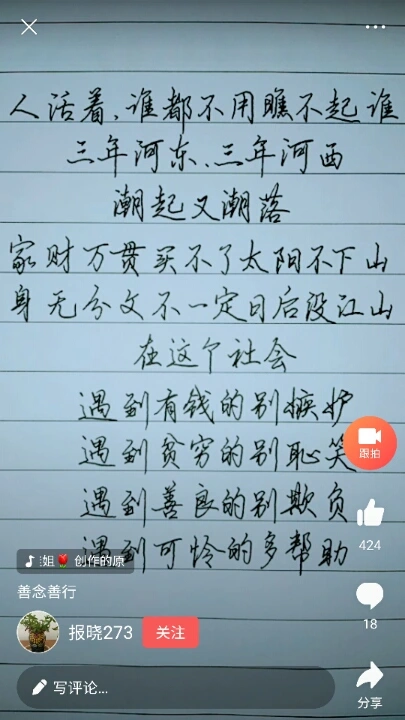 人活着、谁都不用瞧不起谁
三年河东、三年河西
潮起又潮落
家财万贯买不了太阳不下山
身无分文不一定日后没江山
在这个社会
遇到有钱的别嫉妒
遇到贫穷的别耻笑
跟拍
遇到善良的别欺负
424
遇到可怜的多帮助
姐🌹 创作的原
善念善行
18
报晓273
关注
写评论...
分享